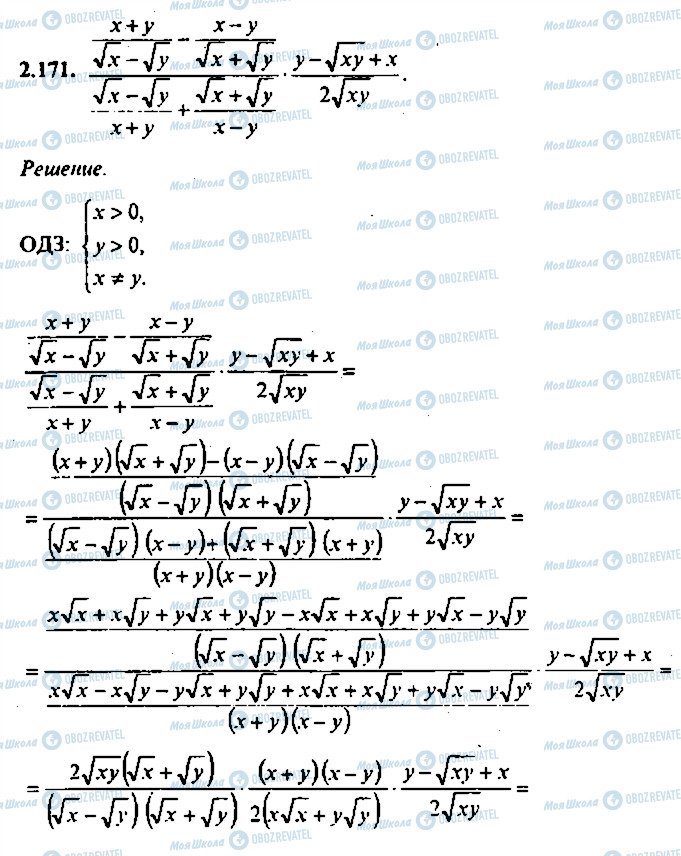 2.171. \frac{\frac{x+y}{\sqrt{x}-\sqrt{y}} - \frac{x-y}{\sqrt{x}+\sqrt{y}}}{\frac{\sqrt{x}-\sqrt{y}}{x+y} + \frac{\sqrt{x}+\sqrt{y}}{x-y}} \cdot \frac{y-\sqrt{xy}+x}{2\sqrt{xy}}.
Решение.
ОДЗ: \begin{cases} x > 0, \\ y > 0, \\ x \neq y. \end{cases}
\frac{\frac{x+y}{\sqrt{x}-\sqrt{y}} - \frac{x-y}{\sqrt{x}+\sqrt{y}}}{\frac{\sqrt{x}-\sqrt{y}}{x+y} + \frac{\sqrt{x}+\sqrt{y}}{x-y}} \cdot \frac{y-\sqrt{xy}+x}{2\sqrt{xy}} =
= \frac{\frac{(x+y)(\sqrt{x}+\sqrt{y})-(x-y)(\sqrt{x}-\sqrt{y})}{(\sqrt{x}-\sqrt{y})(\sqrt{x}+\sqrt{y})}}{\frac{(\sqrt{x}-\sqrt{y})(x-y)+(\sqrt{x}+\sqrt{y})(x+y)}{(x+y)(x-y)}} \cdot \frac{y-\sqrt{xy}+x}{2\sqrt{xy}} =
= \frac{\frac{x\sqrt{x}+x\sqrt{y}+y\sqrt{x}+y\sqrt{y}-x\sqrt{x}+x\sqrt{y}+y\sqrt{x}-y\sqrt{y}}{(\sqrt{x}-\sqrt{y})(\sqrt{x}+\sqrt{y})}}{\frac{x\sqrt{x}-x\sqrt{y}-y\sqrt{x}+y\sqrt{y}+x\sqrt{x}+x\sqrt{y}+y\sqrt{x}-y\sqrt{y}}{(x+y)(x-y)}} \cdot \frac{y-\sqrt{xy}+x}{2\sqrt{xy}} =
= \frac{2\sqrt{xy}(\sqrt{x}+\sqrt{y})}{(\sqrt{x}-\sqrt{y})(\sqrt{x}+\sqrt{y})} \cdot \frac{(x+y)(x-y)}{2(x\sqrt{x}+y\sqrt{y})} \cdot \frac{y-\sqrt{xy}+x}{2\sqrt{xy}} =
Моя Школа OBOZREVATEL